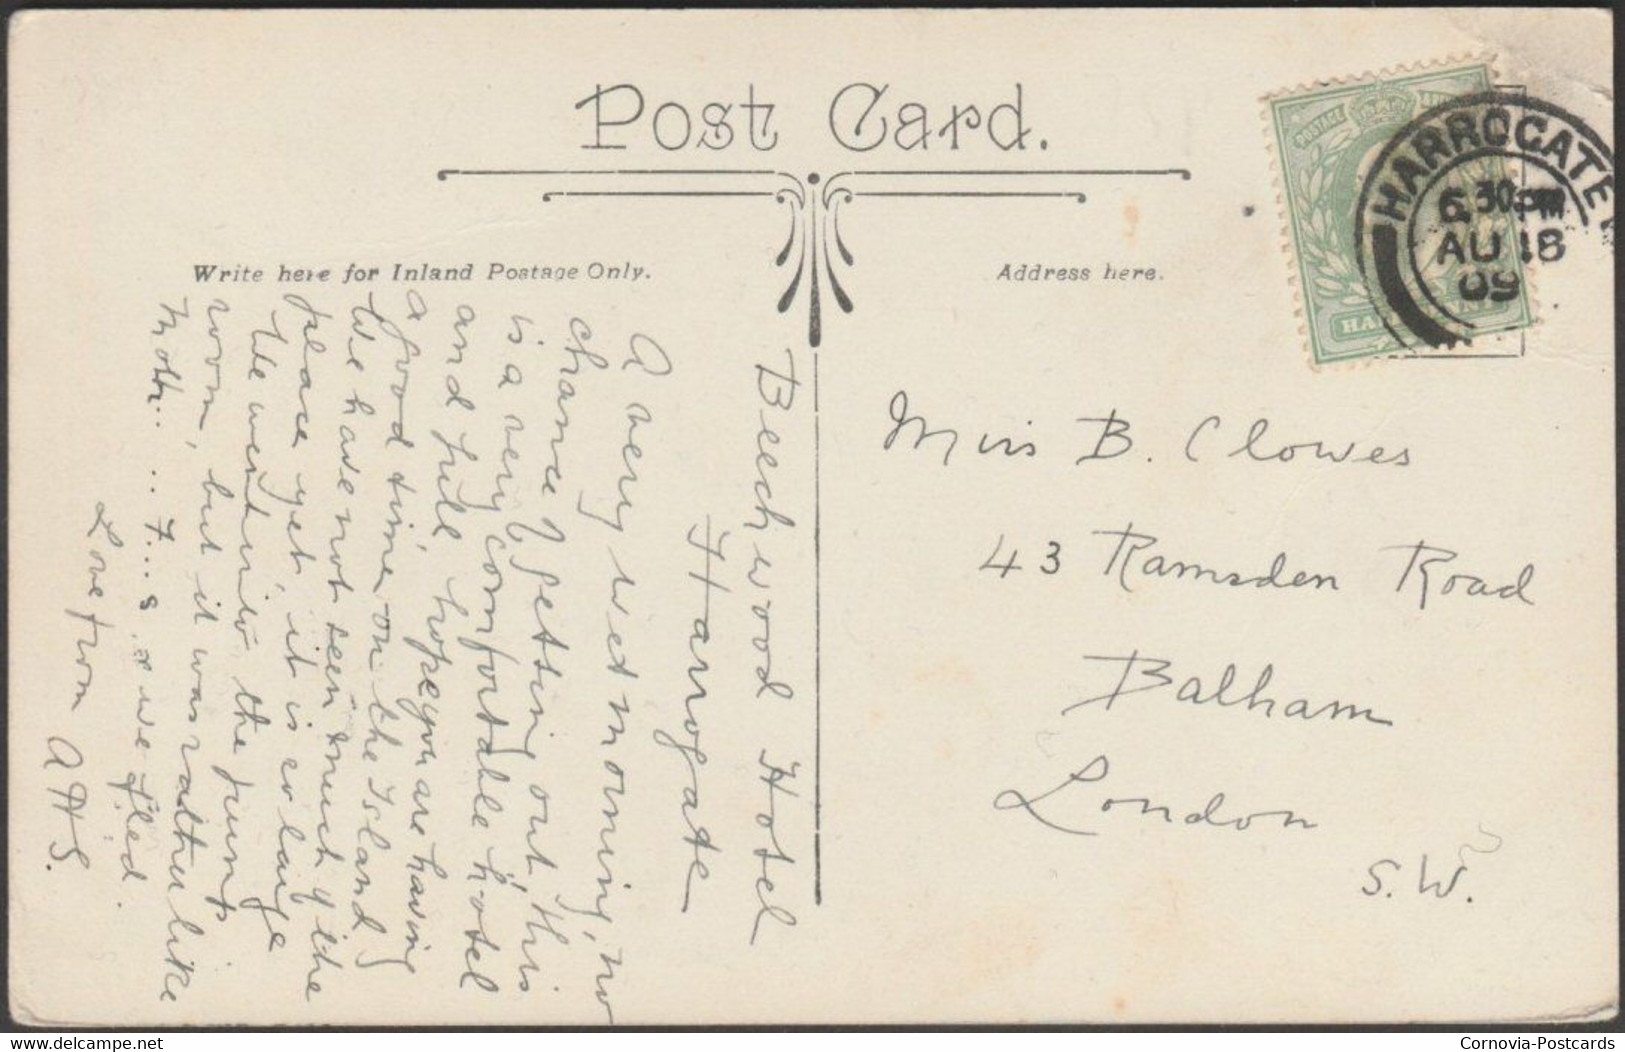 Post Card.
Write here for Inland Postage Only.
Address here.
POSTAGE
HALFPENNY
HARROGATE
6.30PM
AU 18
09
Beechwood Hotel
Harrogate
A very wet morning, no
chance of getting out, this
is a very comfortable hotel
and full, hope you are having
a good time on the Island
We have not seen much of the
place yet, it is so large
We went into the pump
room, but it was rather like
Moth... .. 7...s & we fled.
Love from
A H S.
Miss B. Clowes
43 Ramsden Road
Balham
London
S. W.
delcampe.net
Cornovia-Postcards